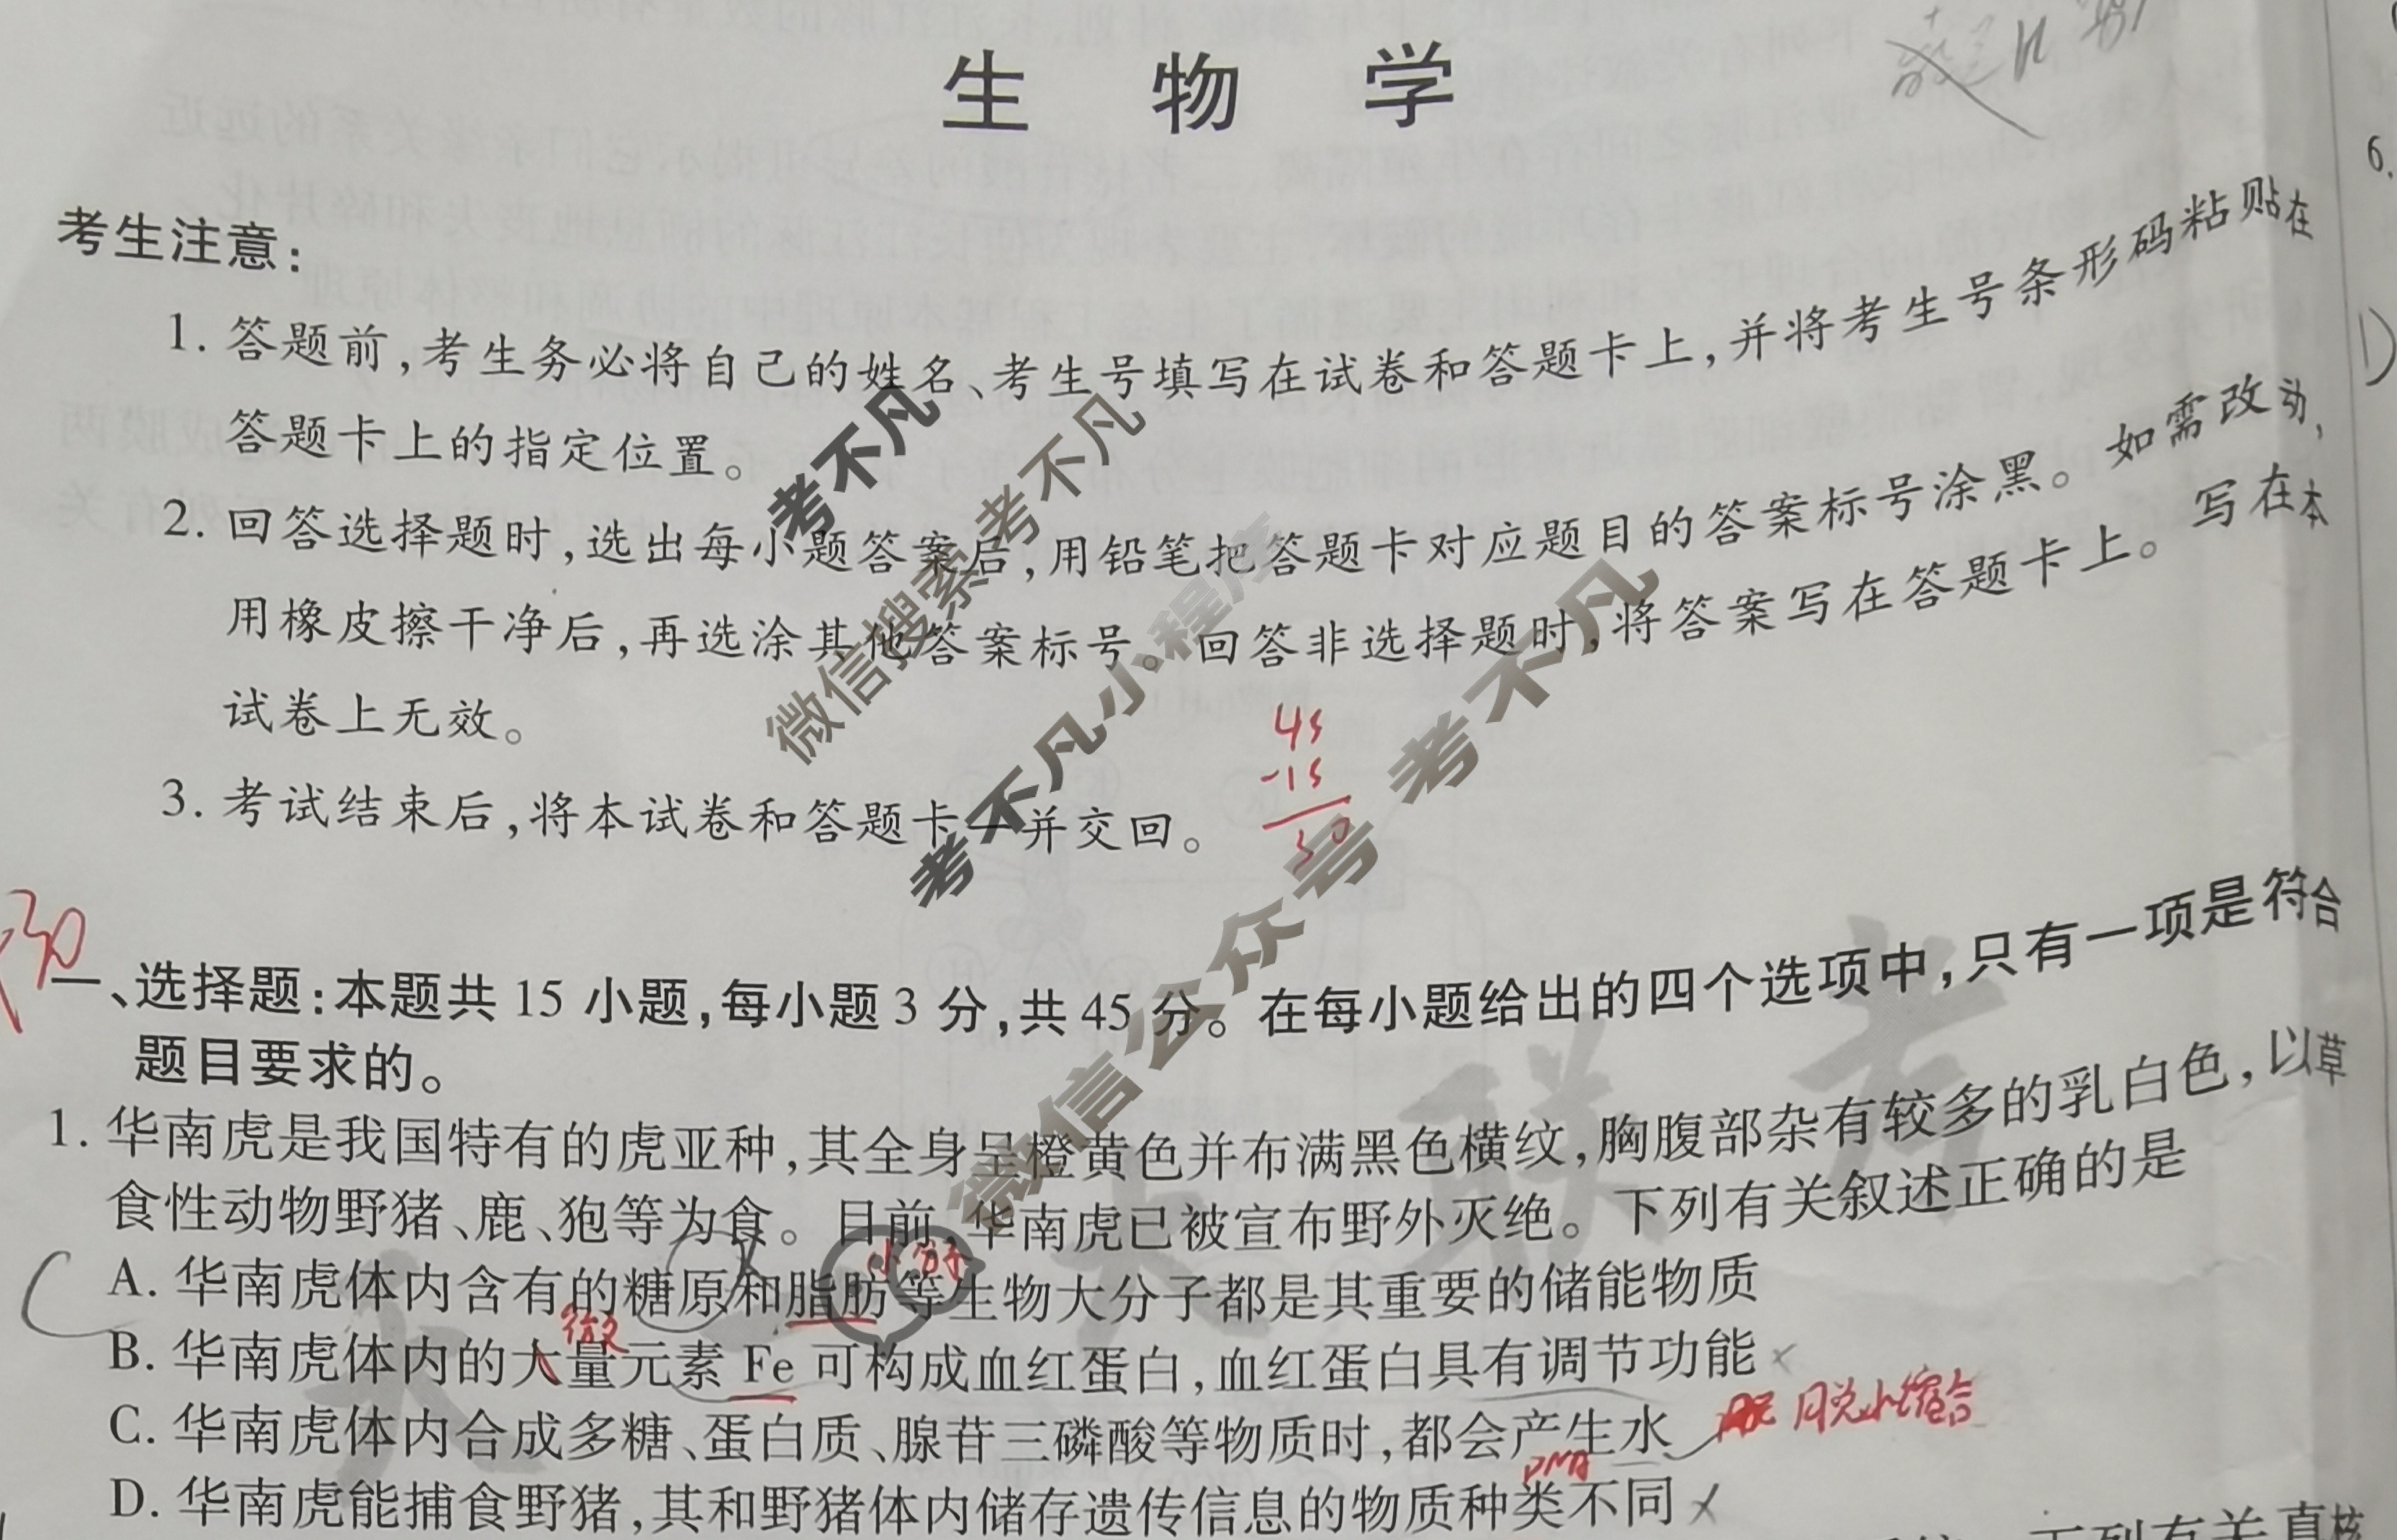 生 物 学
考生注意:
1. 答题前,考生务必将自己的姓名、考生号填写在试卷和答题卡上,并将考生号条形码粘贴在
答题卡上的指定位置。
2. 回答选择题时,选出每小题答案后,用铅笔把答题卡对应题目的答案标号涂黑。如需改动,
用橡皮擦干净后,再选涂其他答案标号。回答非选择题时,将答案写在答题卡上。写在本
试卷上无效。
3. 考试结束后,将本试卷和答题卡一并交回。
45
-15
30
30
一、选择题:本题共 15 小题,每小题 3 分,共 45 分。在每小题给出的四个选项中,只有一项是符合
题目要求的。
1. 华南虎是我国特有的虎亚种,其全身呈橙黄色并布满黑色横纹,胸腹部杂有较多的乳白色,以草
食性动物野猪、鹿、狍等为食。目前,华南虎已被宣布野外灭绝。下列有关叙述正确的是
小分子
A. 华南虎体内含有的糖原和脂肪等生物大分子都是其重要的储能物质
微
B. 华南虎体内的大量元素 Fe 可构成血红蛋白,血红蛋白具有调节功能
C. 华南虎体内合成多糖、蛋白质、腺苷三磷酸等物质时,都会产生水
脱水缩合
DNA
D. 华南虎能捕食野猪,其和野猪体内储存遗传信息的物质种类不同
C
6.
下列有关真核
考不凡
微信搜索考不凡
考不凡小程序
微信公众号 考不凡
大联考